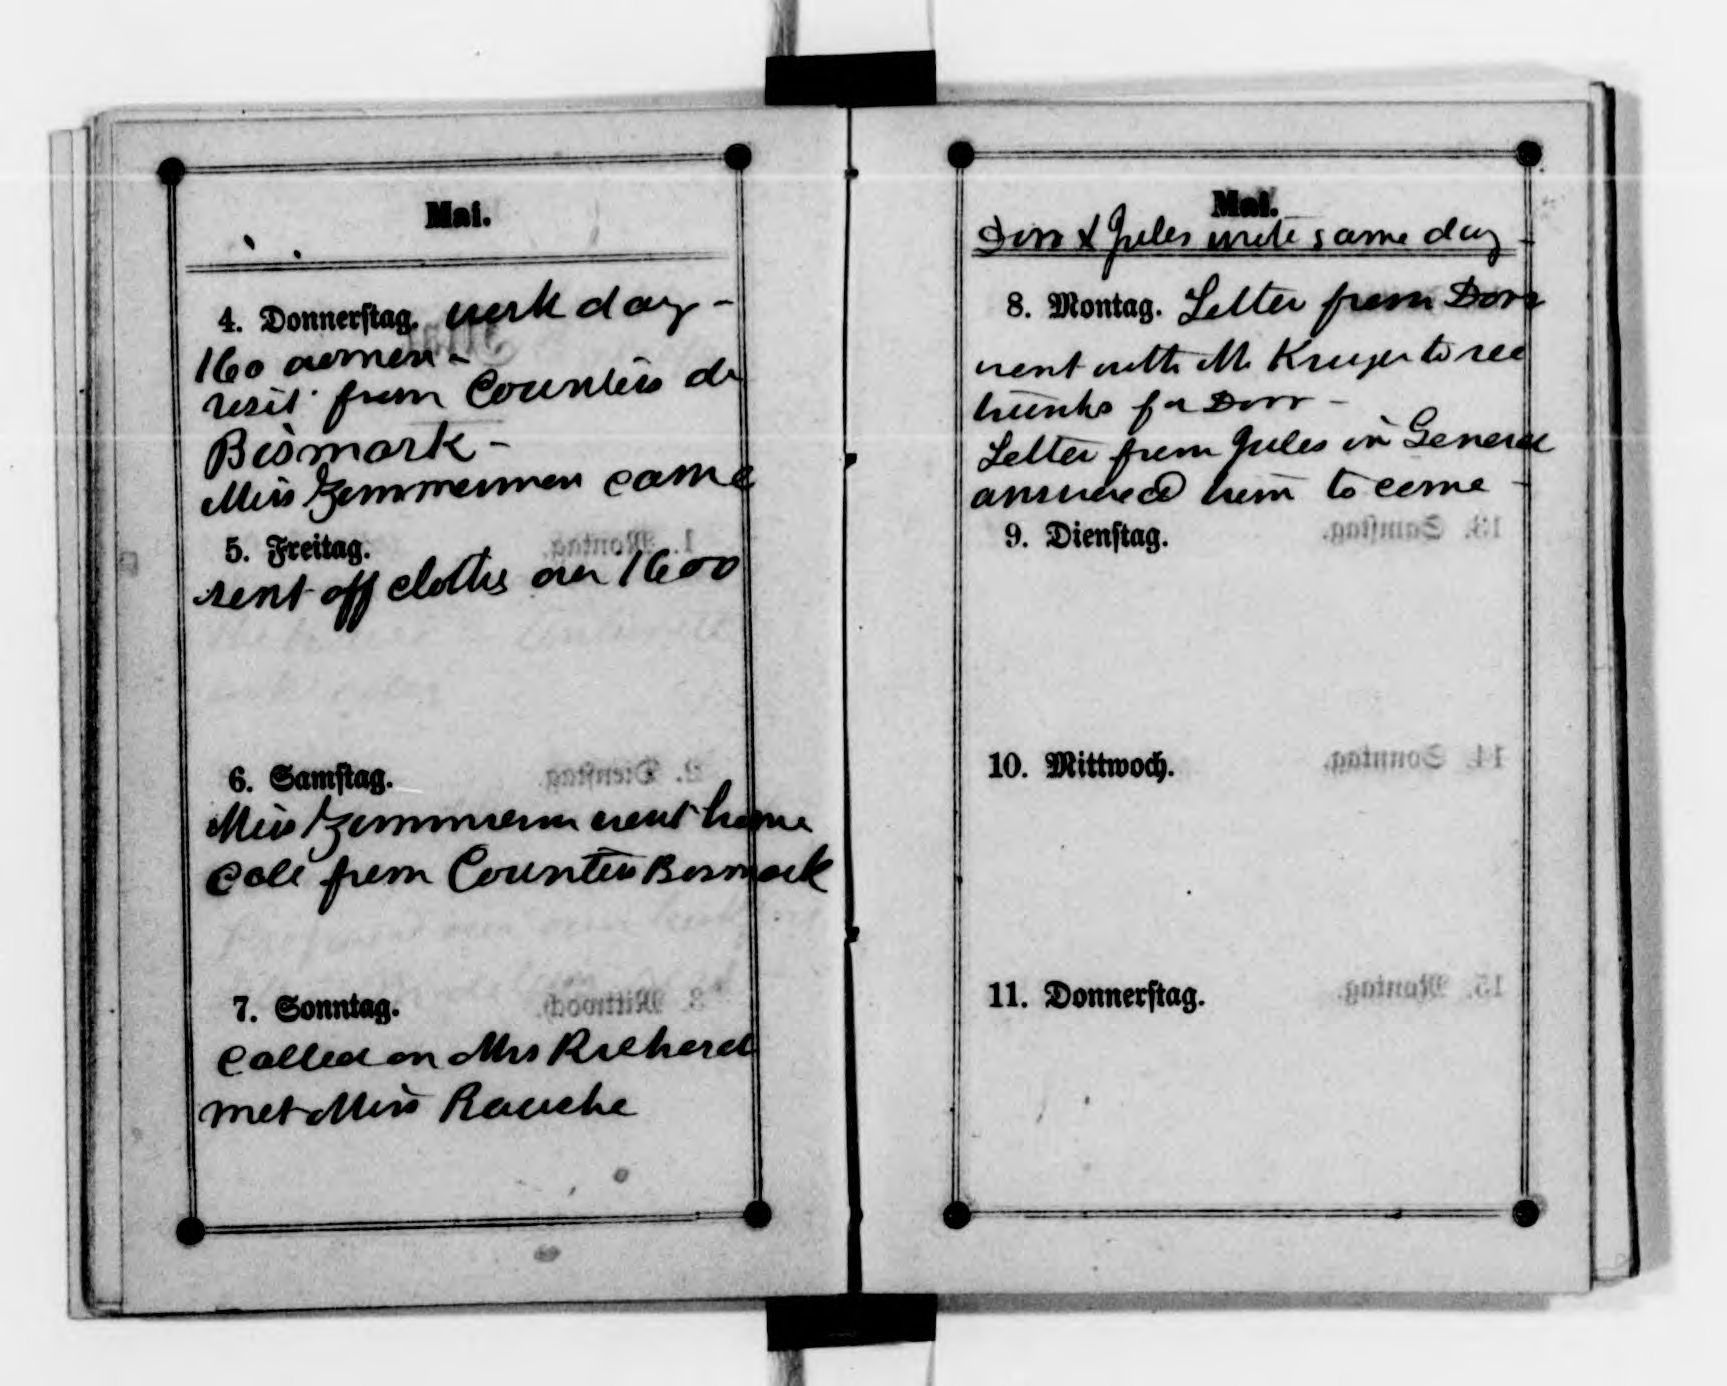 Mai.
4. Donnerstag. work day -
160 women -
visit from Countess de
Bismark -
Miss Zimmerman came
5. Freitag.
sent off cloths over 1600
6. Samstag.
Miss Zimmerman went home
Call from Countess Bismark
7. Sonntag.
Called on Mrs Richard
met Miss Rauche
Mai.
Dorr & Jules write same day -
8. Montag. Letter from Dorr
went with M Kruger to see
trunks for Dorr -
Letter from Jules in General
answered him to come -
9. Dienstag.
10. Mittwoch.
11. Donnerstag.